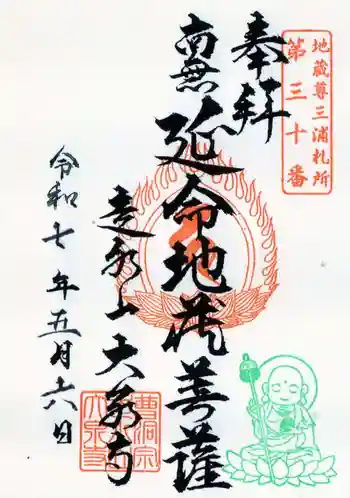 地蔵尊三浦札所
第三十番
奉拝
南無延命地蔵菩薩
山大泉寺
曹洞宗
大泉寺
令和七年五月六日